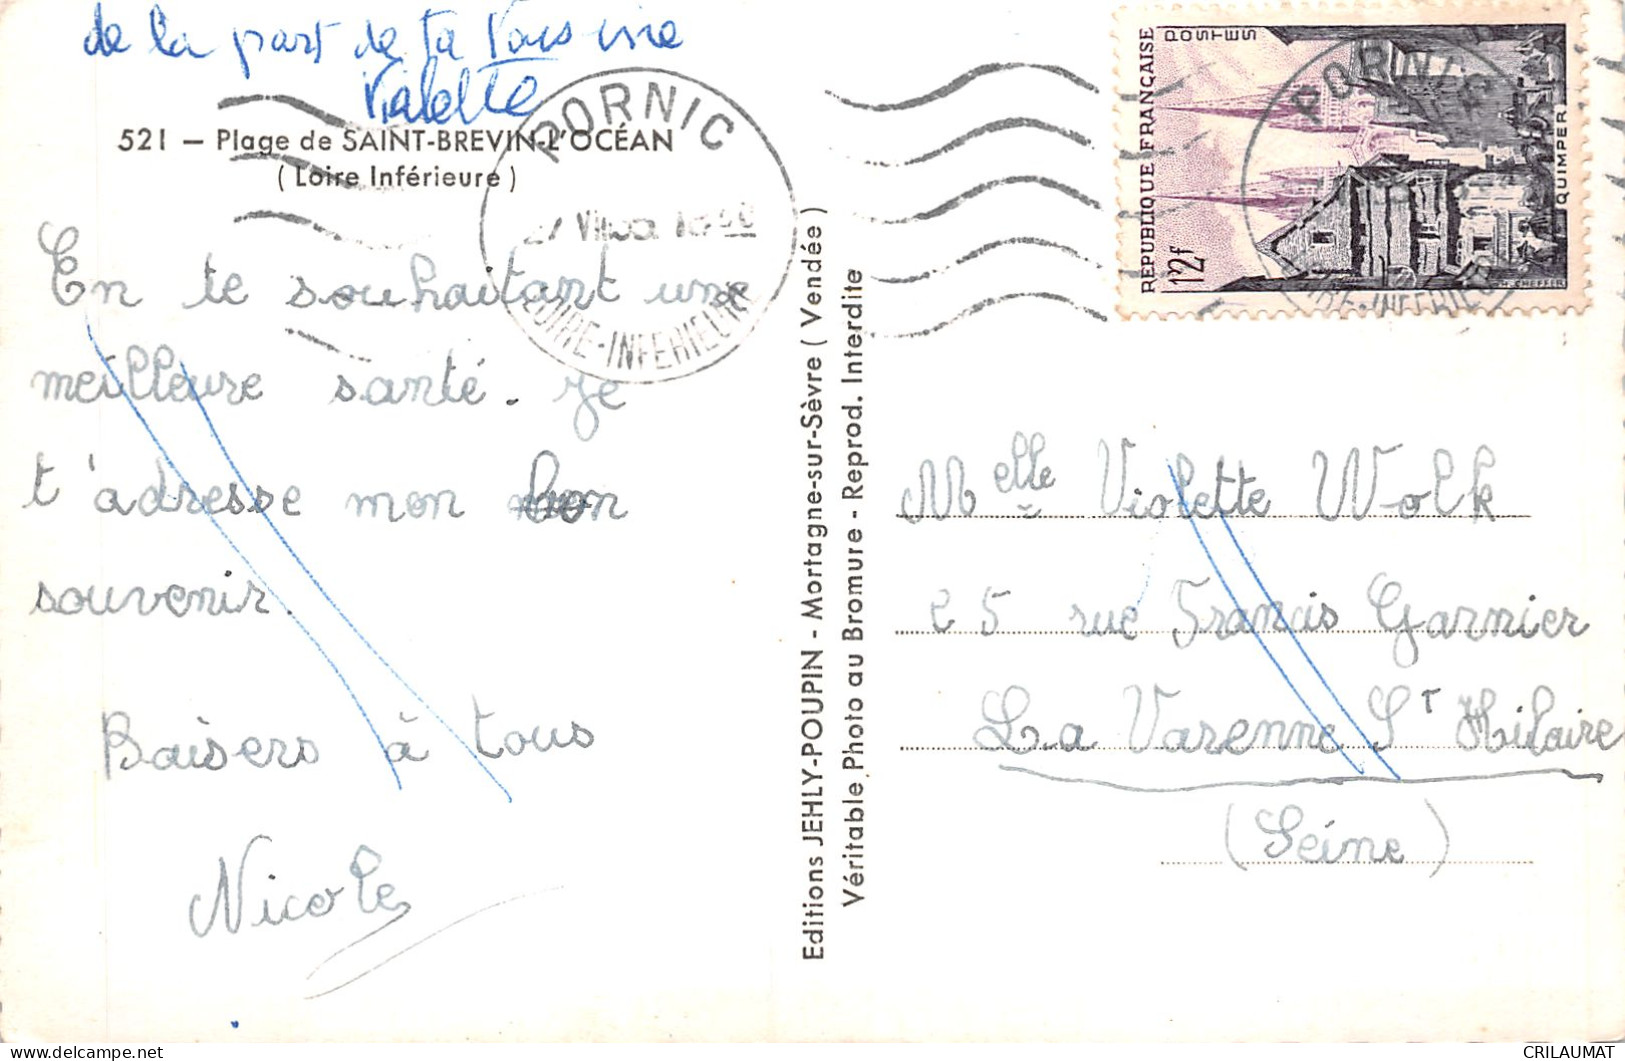 de la part de ta
Violette
521 — Plage de SAINT-BREVIN-L'OCÉAN
( Loire Inférieure )
En te souhaitant une
meilleure santé. Je
t'adresse mon bon
souvenir.
Baisers à tous
Nicole
PORNIC
LOIRE-INFERIEURE
Editions JEHLY-POUPIN - Mortagne-sur-Sèvre ( Vendée )
Véritable Photo au Bromure - Reprod. Interdite
REPUBLIQUE FRANÇAISE
POSTES
12f
QUIMPER
PORNIC
Melle Violette Wolk
25 rue Francis Garnier
La Varenne St Hilaire
(Seine)
CRILAUMAT